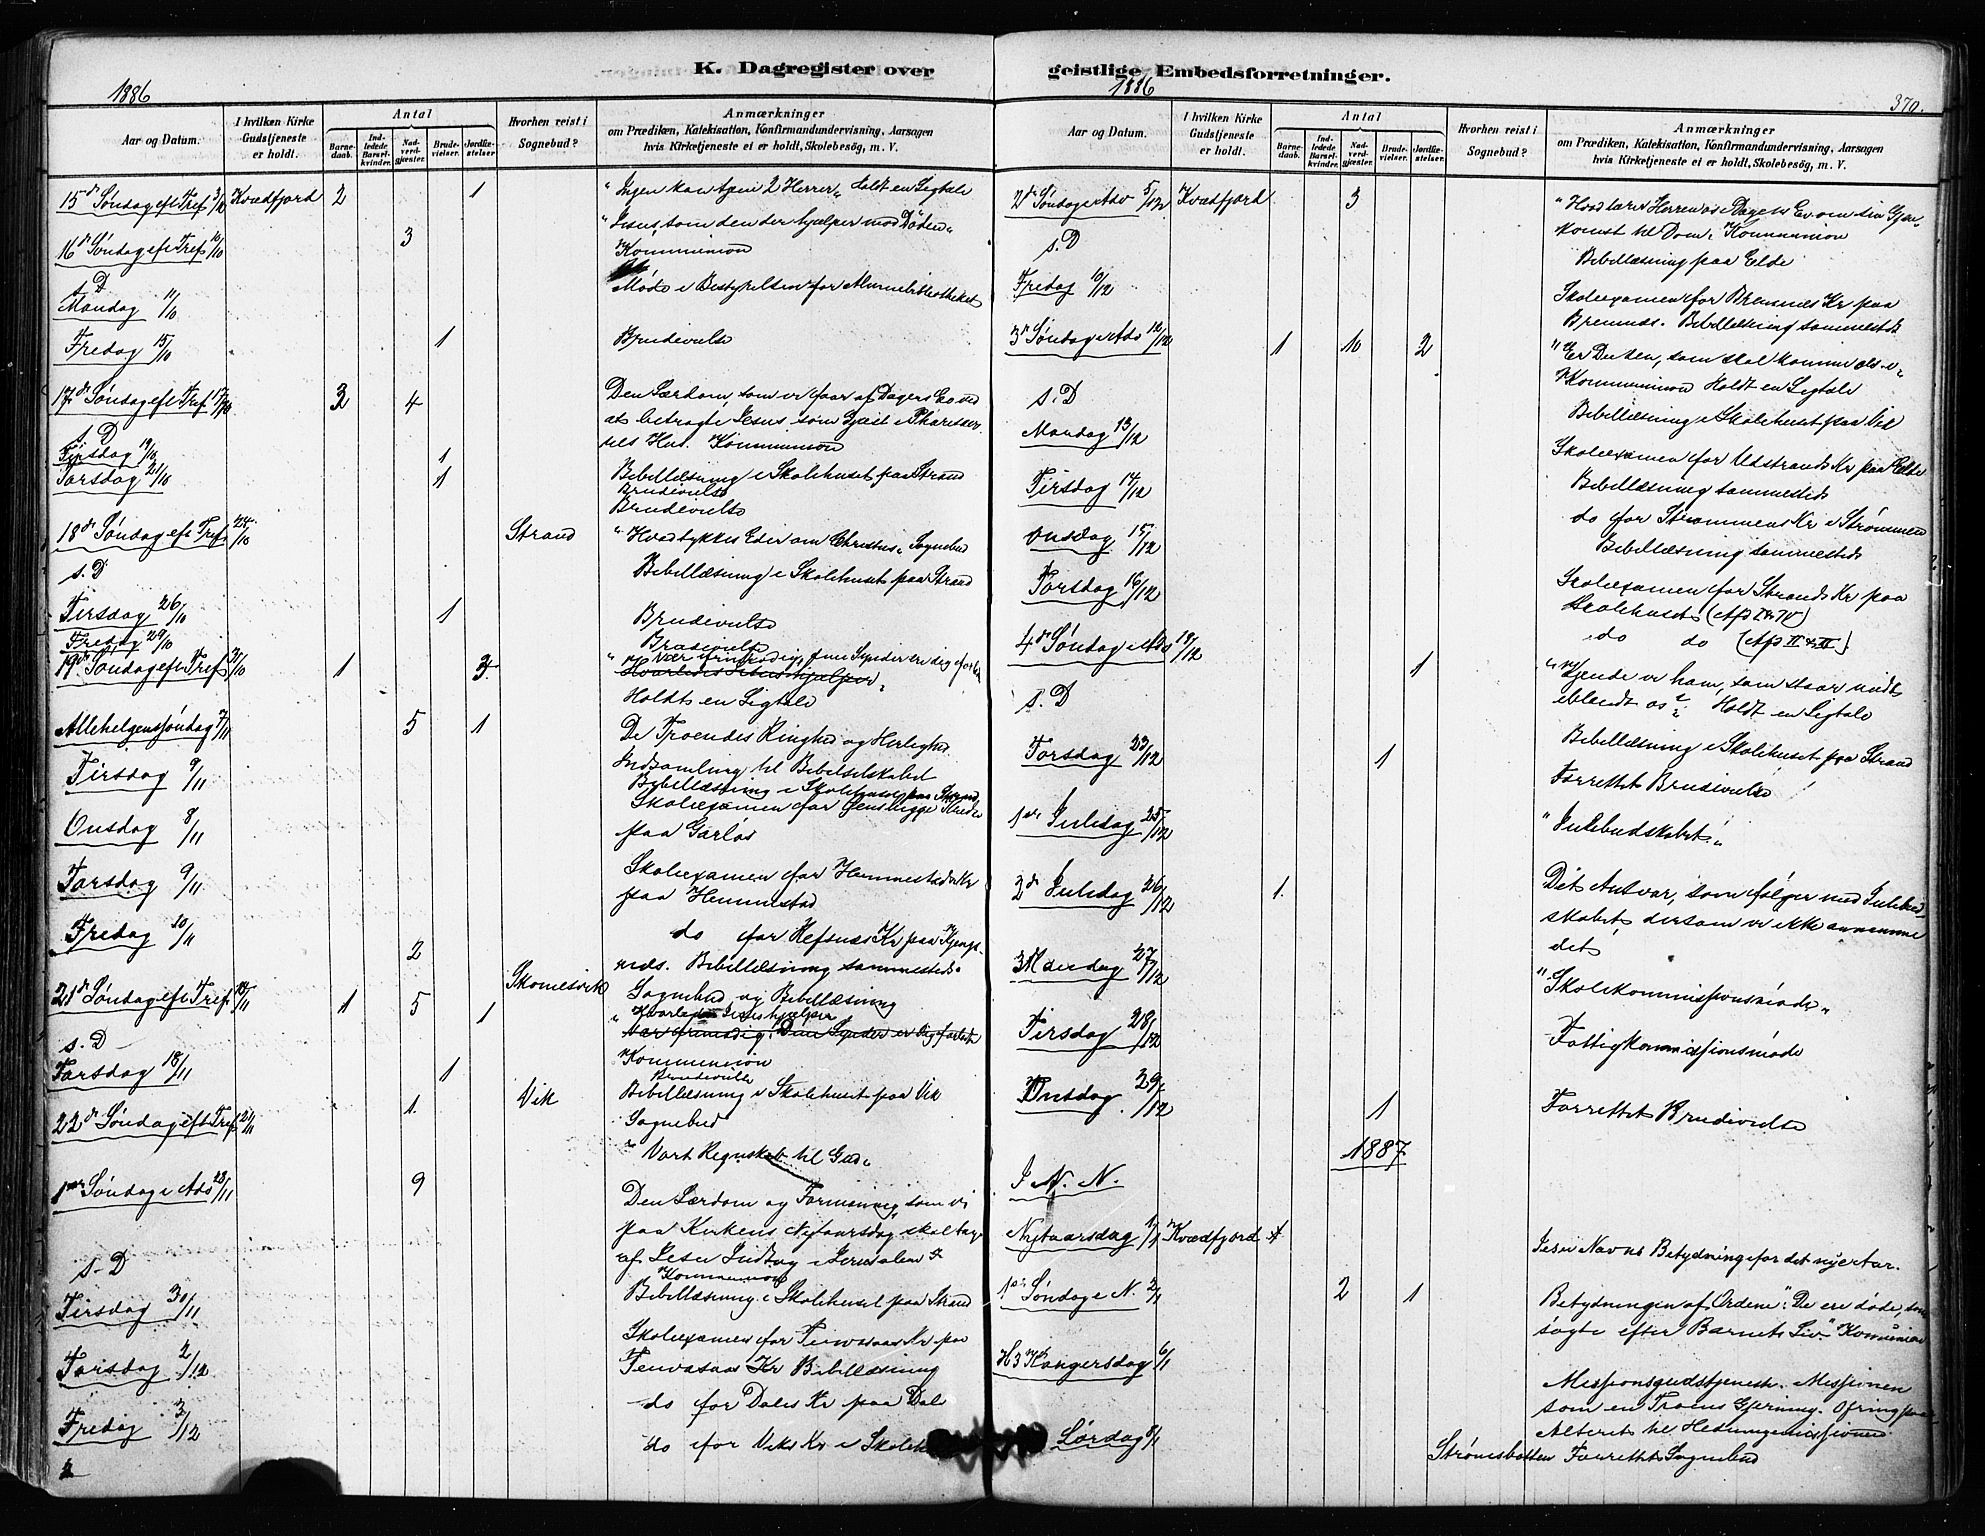 K. Dagregister over
1886
Aar og Datum.
I hvilken Kirke Gudstjeneste er holdt.
Antal
Barnedaab.
Indledede Barselkvinder.
Nadverdgjæster.
Brudevielser.
Jordfæstelser.
Hvorhen reist i Sognebud?
Anmærkninger
om Prædiken, Katekisation, Konfirmandundervisning, Aarsagen
hvis Kirketjeneste ei er holdt, Skolebesög, m. V.
15de Søndag eft Tref 3/10 Kvædfjord 2 1 "Ingen kan tjene 2 Herrer" Holdt en Ligtale
16de Søndag eft Tref 10/10 3 "Jesus, som den der hjælper mod Døden"
Kommunion
s. D
Mandag 11/10 Møde i Bestyrelsen for Almuebibliotheket
Fredag 15/10 1 Brudevielse
17de Søndag eft Tref 17/10 3 4 Den Lærdom, som vi faar af Dagens Ev ved
at betragte Jesus som Gjæst i Pharisæe
rens Hus. Kommunion
s. D
Tirsdag 19/10 1
Torsdag 21/10 1 Bibellæsning i Skolehuset paa Strand
Brudevielse
Brudevielse
18de Søndag eft Tref 24/10 Strand "Hvad tykkes Eder om Christus" Sognebud
s. D Bibellæsning i Skolehuset paa Strand
Tirsdag 26/10 1 Brudevielse
Fredag 29/10 Brudevielse
19de Søndag eft Tref 31/10 1 "Vær frimodig, dine Synder ere dig forladt
Hvorledes Jesus hjælper"
Holdt en Ligtale
Allehelgenssøndag 7/11 5 1 De Troendes Ringhed og Herlighed
Indsamling til Bibelselskabet
Tirsdag 9/11 Bibellæsning i Skolehuset paa Strand
Skoleexamen for
Onsdag 8/11 paa Garløs
Torsdag 9/11 Skoleexamen for Hemmestads Kr
paa Hemmestad
Fredag 10/11 do for Refsnæs Kr paa
2 næs. Bibellæsning sammesteds
21de Søndag eft Tref 14/11 1 5 1 Sognebud og Bibellæsning
"Hvorledes Jesus hjælper
Vær frimodig! Dine Synder er Dig forladte
s. D Kommunion
Torsdag 18/11 1 Brudevielse
Vik Bibellæsning i Skolehuset paa Vik
22de Søndag eft Tref 21/11 1. Sognebud
"Vort Regnskab til Gud"
1ste Søndag i Adv 28/11 9 Den Lærdom og Formaning, som vi
paa Kirkens Nytaarsdag skal tage
af Jesu Indtog i Jerusalem
s. D Kommunion
Tirsdag 30/11 Bibellæsning i Skolehuset paa Strand
Skoleexamen for Kr paa
Torsdag 2/12 Kr Bibellæsning
do for Dales Kr paa Dale
Fredag 3/12 do for Viks Kr i
geistlige Embedsforretninger.
1886
370.
Aar og Datum.
I hvilken Kirke Gudstjeneste er holdt.
Antal
Barnedaab.
Indledede Barselkvinder.
Nadverdgjæster.
Brudevielser.
Jordfæstelser.
Hvorhen reist i Sognebud?
Anmærkninger
om Prædiken, Katekisation, Konfirmandundervisning, Aarsagen
hvis Kirketjeneste ei er holdt, Skolebesög, m. V.
2den Søndag i Adv 5/12 Kvædfjord 3 "Hvad lærer Herren os i Dagens Ev om sin Gjen-
komst til Dom" Kommunion
s. D Bibellæsning paa Elde
Fredag 10/12 Skoleexamen for Bremnes Kr paa
Bremnes. Bibellæsning sammesteds
3de Søndag i Adv 12/12 1 10 2 "Er Du den, som skal komme
Kommunion Holdt en Ligtale
s. D Bibellæsning i Skolehuset paa Vik
Mandag 13/12 Skoleexamen for Udstrands Kr paa Elde
Tirsdag 14/12 Bibellæsning sammesteds
Onsdag 15/12 do for Strømmens Kr i Strømmen
Bibellæsning sammesteds
Torsdag 16/12 Skoleexamen for Strands Kr paa
Skolehuset
do do
4de Søndag i Adv 19/12 1 "Kjende vi ham, som staar midt
iblandt os?" Holdt en Ligtale
s. D Bibellæsning i Skolehuset paa Strand
Torsdag 23/12 1 Forrettet Brudevielse
1ste Juledag 25/12 "Julebudskabet"
2den Juledag 26/12 1. Det Ansvar, som følger med Julebud
skabet, dersom vi ikke annamme
det
Mandag 27/12 "Skolekommissionsmøde"
Tirsdag 28/12 Fattigkommissionsmøde
Onsdag 29/12 1 Forrettet Brudevielse
1887
I N. N.
Nytaarsdag 1/1 Kvædfjord Jesu Navns Betydning for det nye Aar.
1ste Søndag e N. 2/1 2 1 Betydningen af Ordene: "De ere døde, som
søgte efter Barnets Liv" Kommunion
H 3 Kongersdag 6/1 Missionsgudstjeneste. Missionen
som en Troens Gjerning. Ofring paa
Alteret til Hedningemissionen
Lørdag 8/1 Strømsbotten Forrettet Sognebud